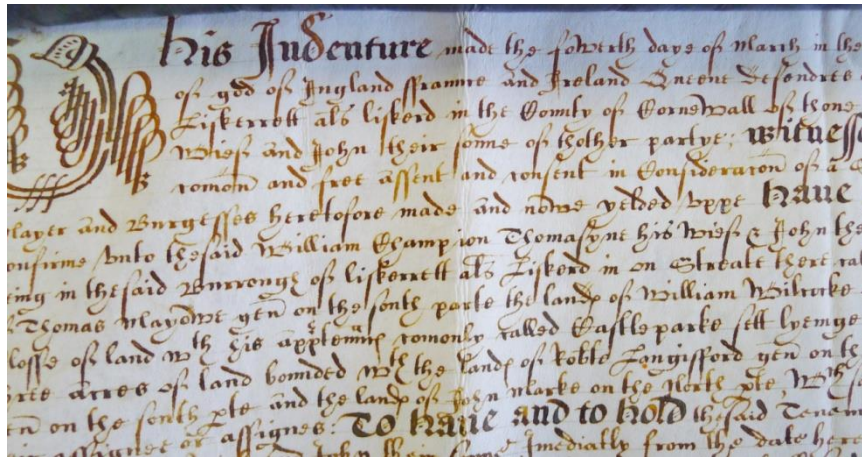 This Indenture made the fowerth daye of March in the
of god of Ingland ffraunce and Ireland Queene defendres
Liskerrett als liskerd in the County of Cornewall of thone
Wief and John their sonne of thother partye; Witness
comon and free assent and consent in Consideracon of a
Mayer and Burgesses heretofore made and nowe yelded uppe Have
onfirme unto thesaid William Champion Thomasyne his Wief & John the
ing in thesaid Burrough of liskerrett als Liskerd in on Streate there cal
Thomas Mayowe gen on the south parte the land of William Wilcocke
losse of land wth his apptennc comonly called Castleparke sett lyenge
ree acres of land bounded wth the land of Robte Langisford gen on th
en on the south pte and the land of John Marke on the North pte, Wth
assignee or assignes: To have and to hold thesaid Tenem
John their Imediatly from the date here